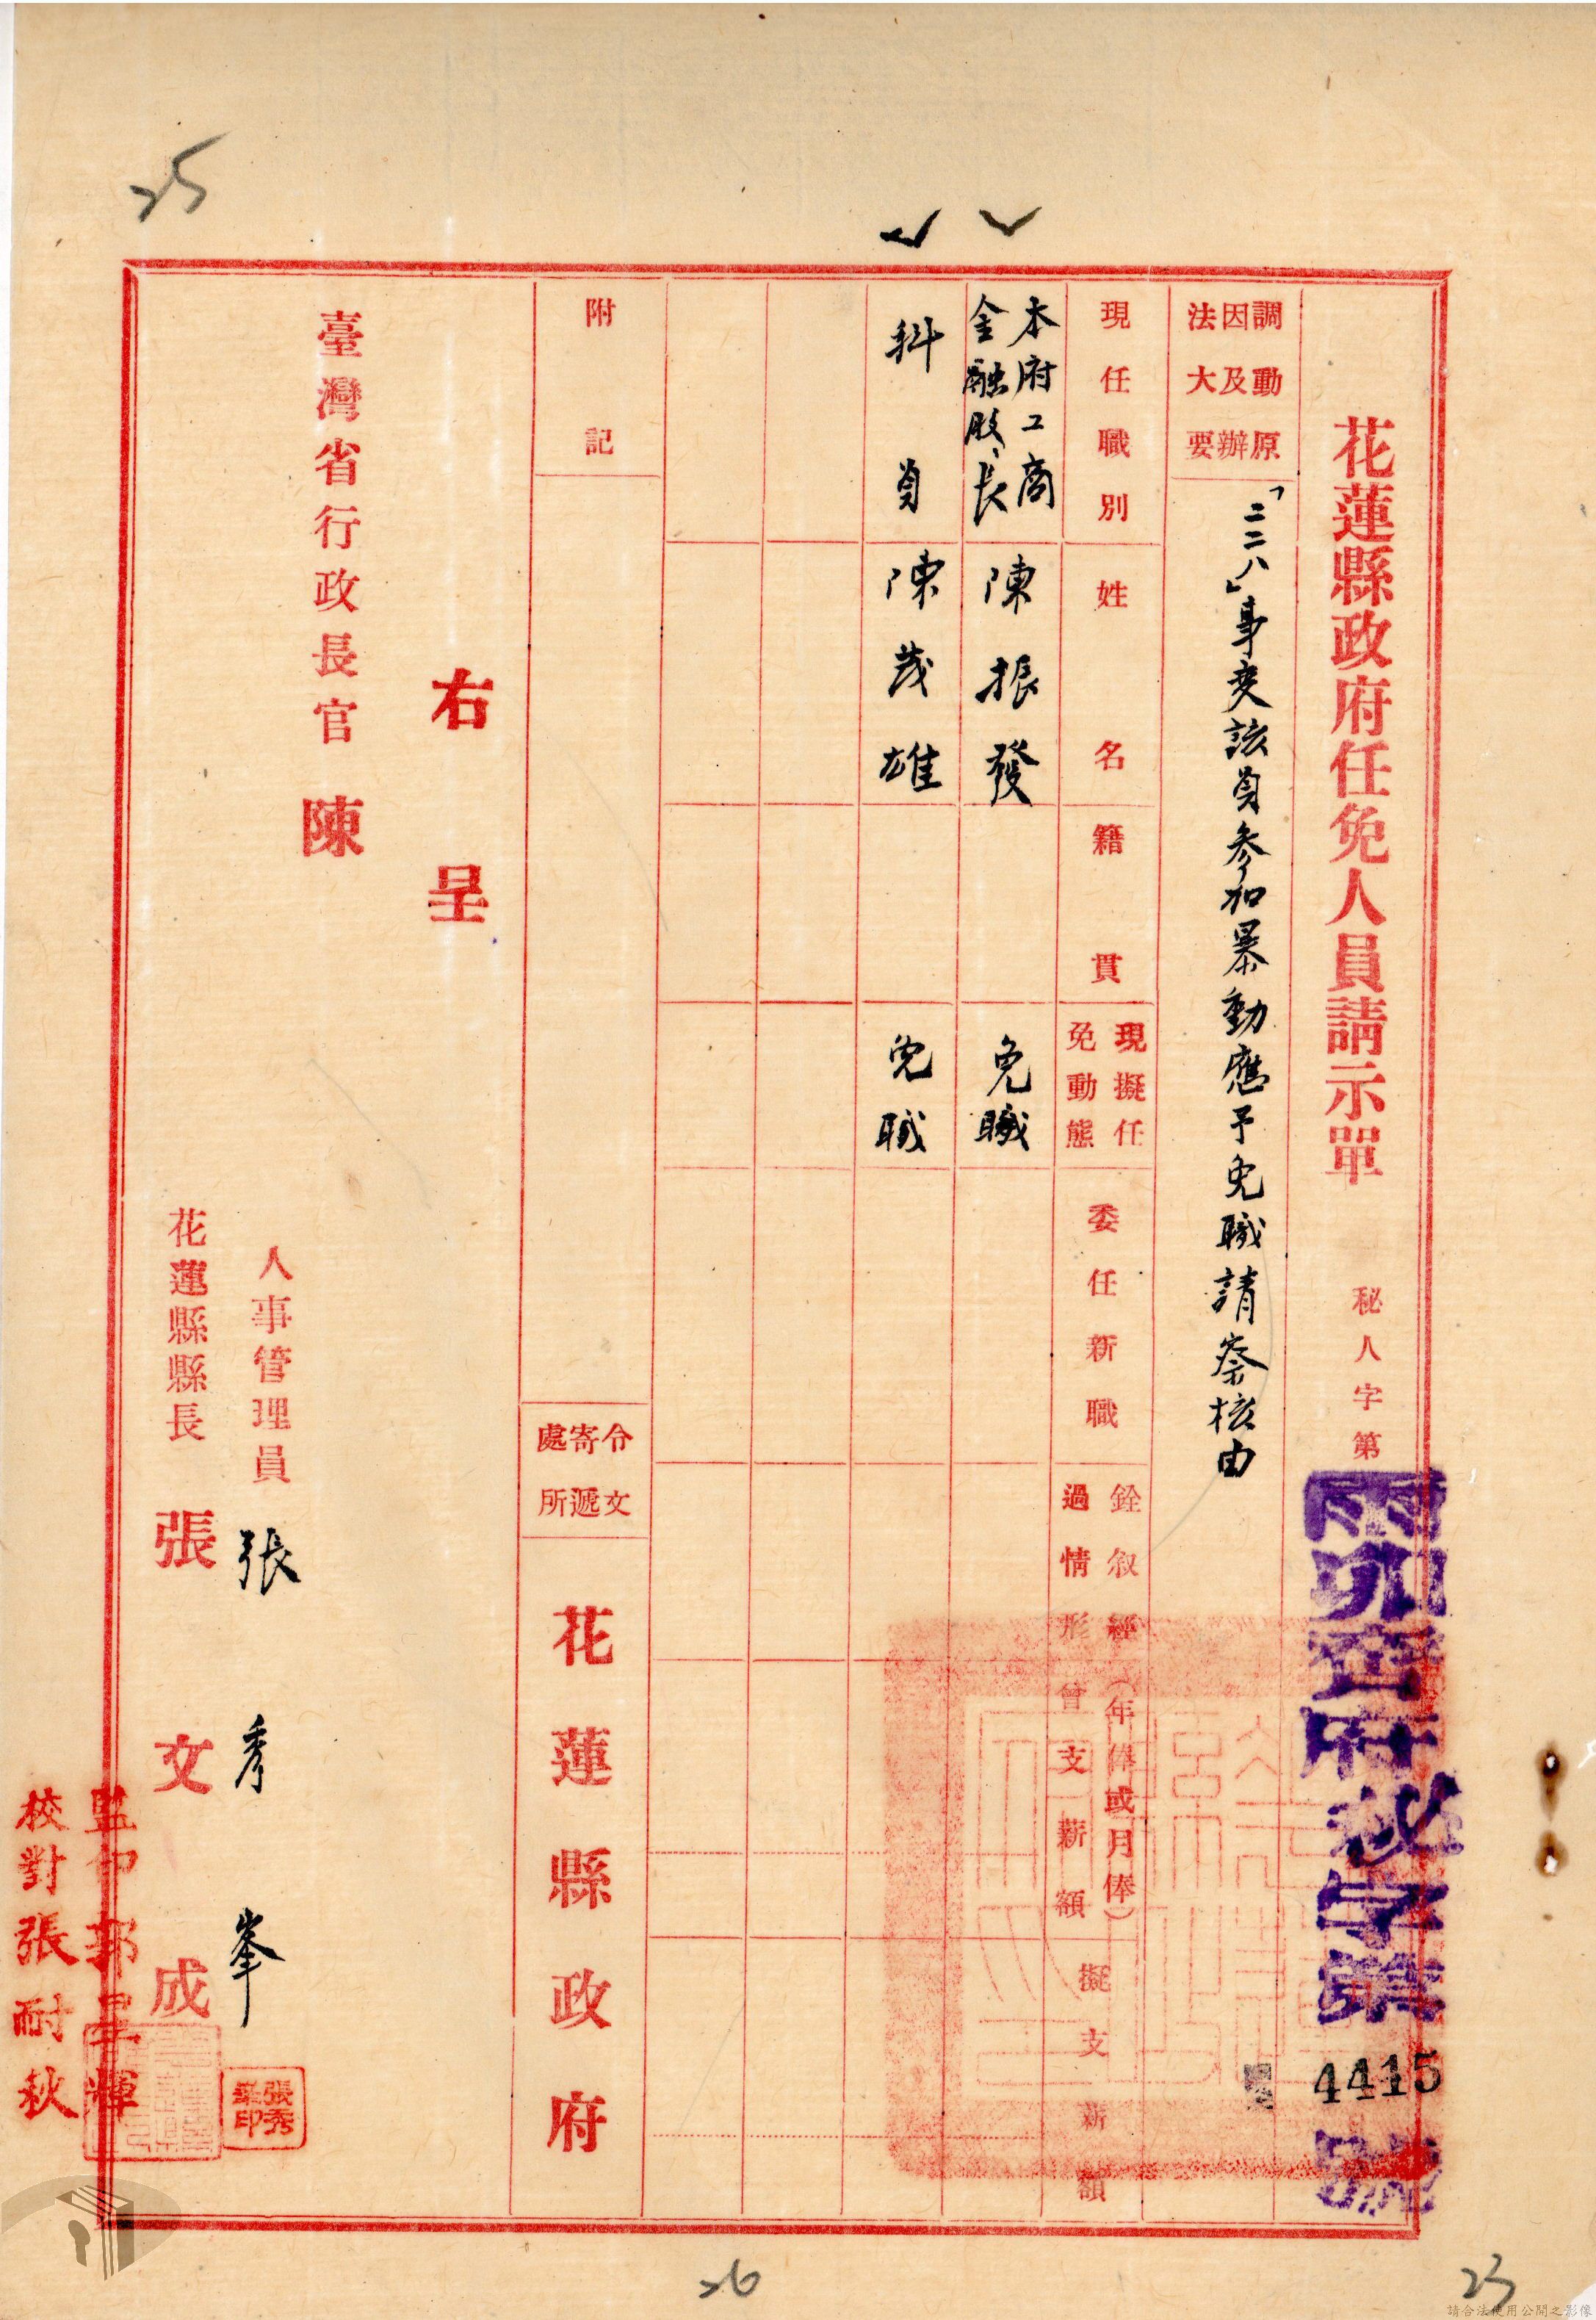 花蓮縣政府任免人員請示單
秘人字第
府秘字第
4415
號
調動原
因及辦
法大要
「二二八」事変該員參加暴動應予免職請察核由
現任職別
姓名
籍貫
現擬任
免動態
委任新職
銓叙經
過情形
曾支薪額
(年俸或月俸)
擬支薪額
本府工商
金融股長
陳振發
免職
科員
陳茂雄
免職
附記
令文
寄遞
處所
花蓮縣政府
右呈
臺灣省行政長官陳
人事管理員
張秀峯
張秀
峯印
花蓮縣縣長
張文成
監印郭星輝
校對張耐秋
25
26
23
請合法使用公開之影像